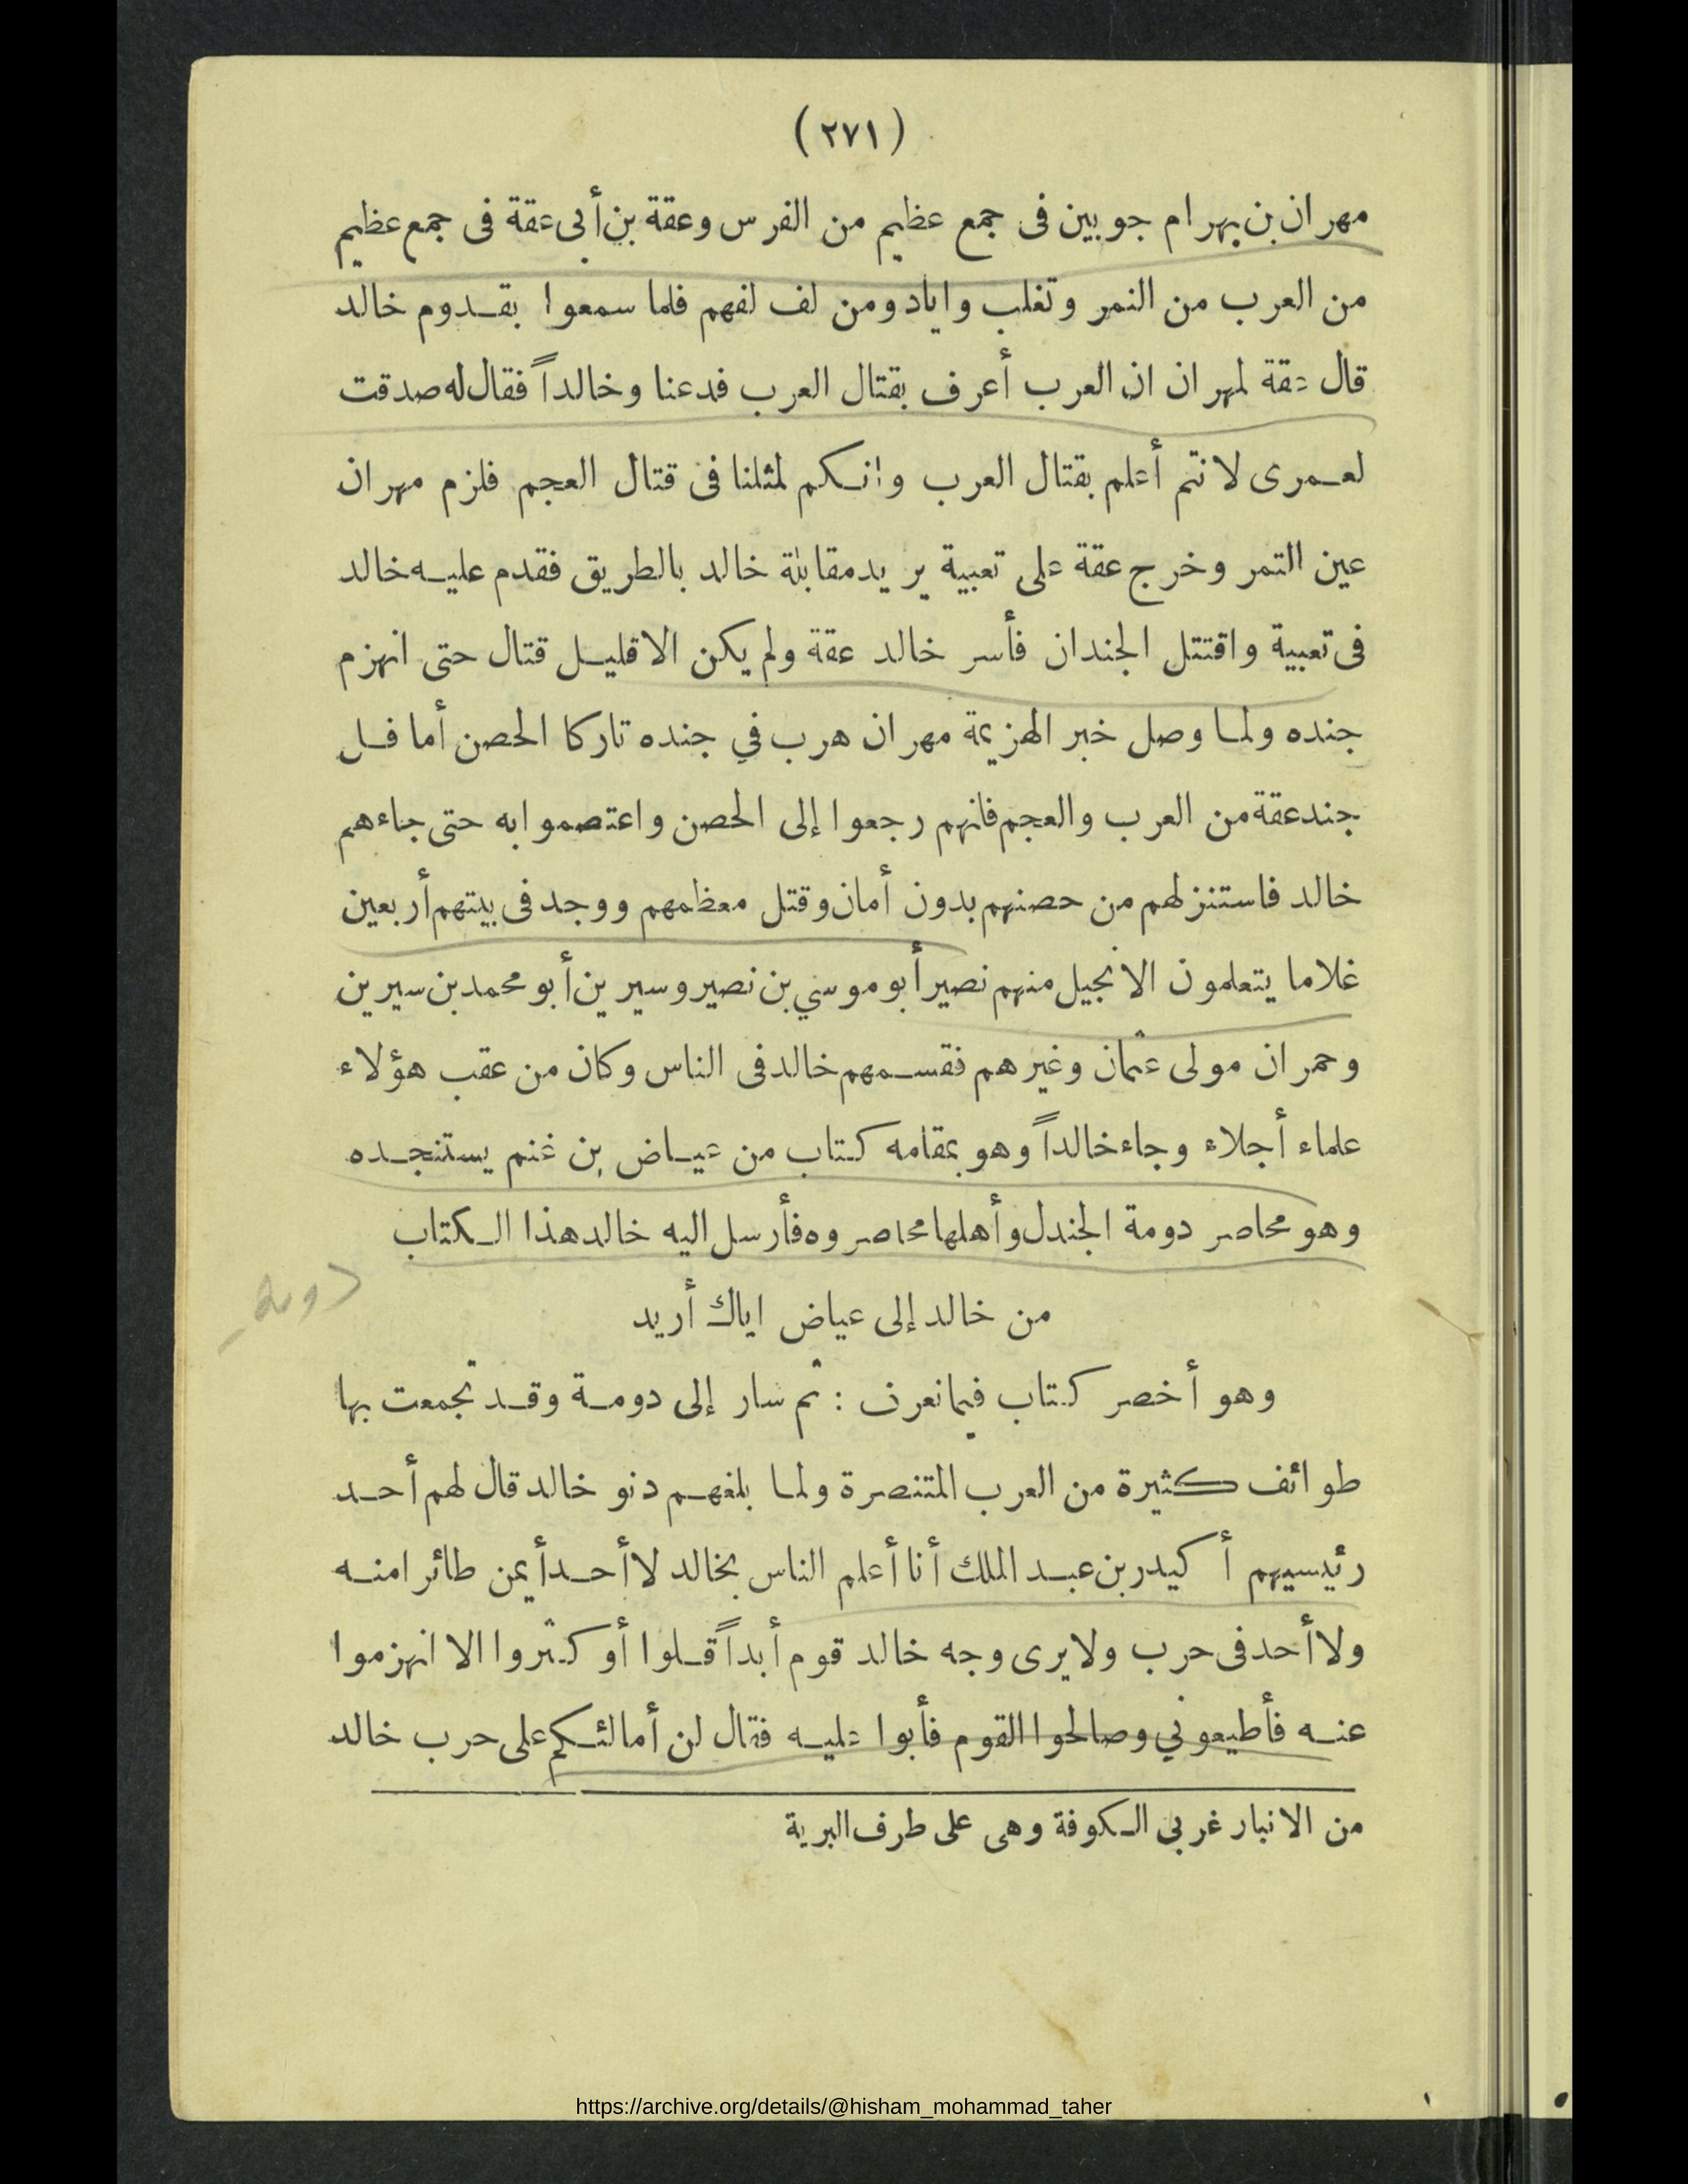 (٢٧١)
مهران بن بهرام جوبين فى جمع عظيم من الفرس وعقة بن أبى عقة فى جمع عظيم
من العرب من النمر وتغلب واياد ومن لف لفهم فلما سمعوا بقدوم خالد
قال عقة لمهران ان العرب أعرف بقتال العرب فدعنا وخالداً فقال له صدقت
لعمرى لانتم أعلم بقتال العرب وانكم لمثلنا فى قتال العجم فلزم مهران
عين التمر وخرج عقة على تعبية يريد مقابلة خالد بالطريق فقدم عليه خالد
فى تعبية واقتتل الجندان فأسر خالد عقة ولم يكن الا قليل قتال حتى انهزم
جنده ولما وصل خبر الهزيمة مهران هرب في جنده تاركا الحصن أما فل
جند عقة من العرب والعجم فانهم رجعوا إلى الحصن واعتصموا به حتى جاءهم
خالد فاستنزلهم من حصنهم بدون أمان وقتل معظمهم ووجد فى بيتهم أربعين
غلاما يتعلمون الانجيل منهم نصير أبو موسي بن نصير وسيرين أبو محمد بن سيرين
وحمران مولى عثمان وغيرهم فقسمهم خالد فى الناس وكان من عقب هؤلاء
علماء أجلاء وجاء خالداً وهو بمقامه كتاب من عياض بن غنم يستنجده
وهو محاصر دومة الجندل وأهلها محاصروه فأرسل اليه خالد هذا الكتاب
دومة
من خالد إلى عياض اياك أريد
وهو أخصر كتاب فيما نعرف : ثم سار إلى دومة وقد تجمعت بها
طوائف كثيرة من العرب المتنصرة ولما بلغهم دنو خالد قال لهم أحد
رئيسيهم أكيدر بن عبد الملك أنا أعلم الناس بخالد لا أحد أيمن طائرا منه
ولا أحد فى حرب ولا يرى وجه خالد قوم أبداً قلوا أو كثروا الا انهزموا
عنه فأطيعوني وصالحوا القوم فأبوا عليه فقال لن أمالئكم على حرب خالد
من الانبار غربي الكوفة وهى على طرف البرية
https://archive.org/details/@hisham_mohammad_taher